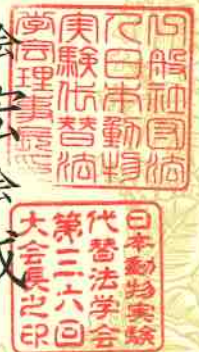 一般社団法
人日本動物
実験代替法
学会理事長
日本動物実験
代替法学会
第三六回
大会長之印